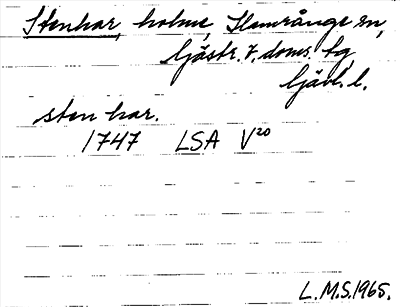 Stenhar, holme, Ilsmrånge sn,
Gästr. v. doms. tg
Gävl. l.
sten har.
1747 LSA V20
L.M.S. 1965.